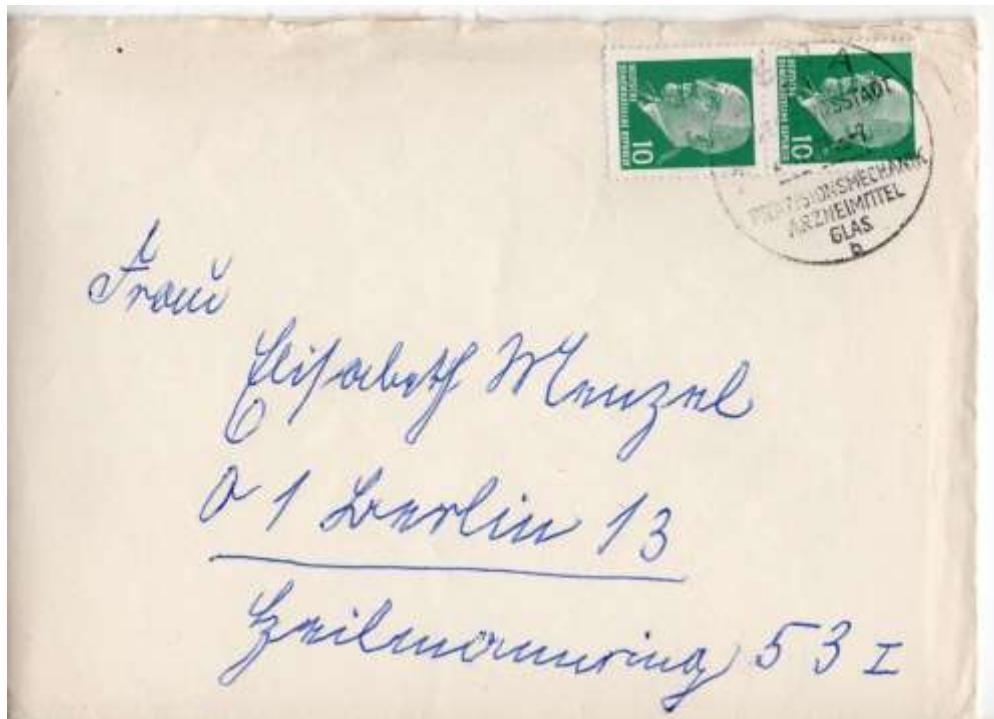 DEUTSCHE
DEMOKRATISCHE REPUBLIK
10
DEUTSCHE
DEMOKRATISCHE REPUBLIK
10
PRÄZISIONSMECHANIK
ARZNEIMITTEL
GLAS
b
Frau
Elisabeth Menzel
1 Berlin 13
Heilmannring 53 I